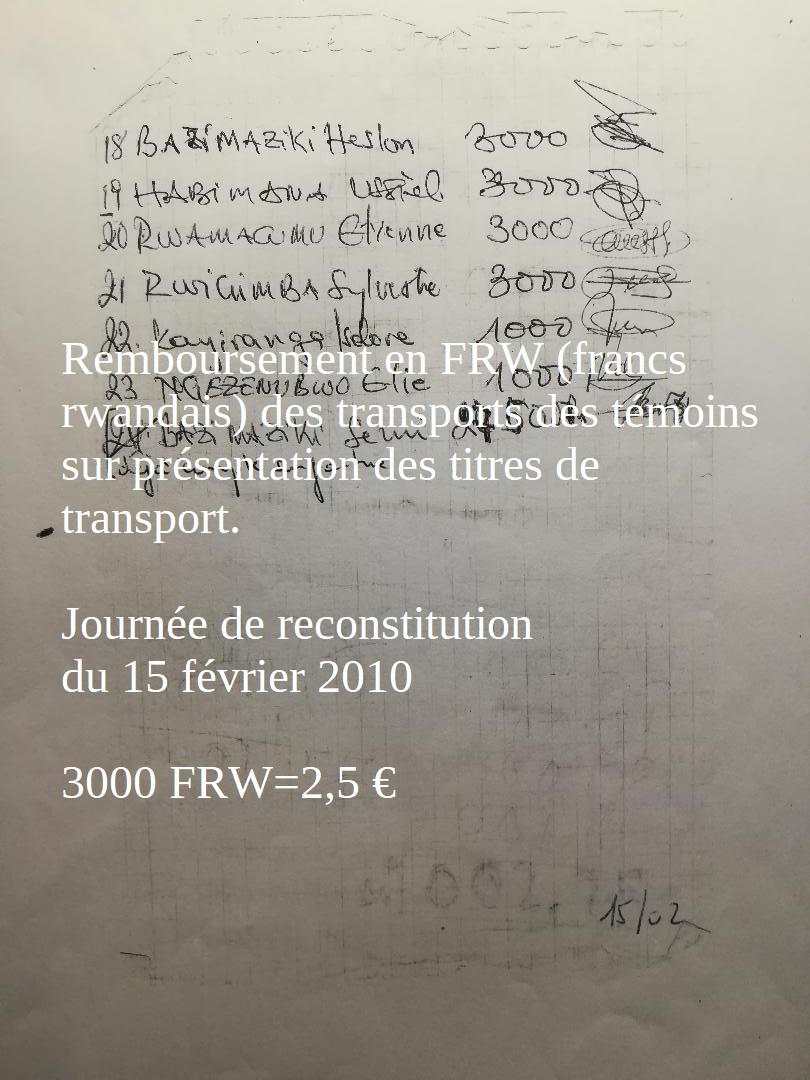 18 BAZIMAZIKI Heslon 3000
19 HABIMANA Uziel 3000
20 RWAMAGUMU Etienne 3000
21 RWIGIMBA Sylvestre 3000
22. Kayiranga Isdore 1000
23 NGEZENUBWO Elie 1000
BAZIMAZIKI
Remboursement en FRW (francs
rwandais) des transports des témoins
sur présentation des titres de
transport.
Journée de reconstitution
du 15 février 2010
3000 FRW=2,5 €
15/02